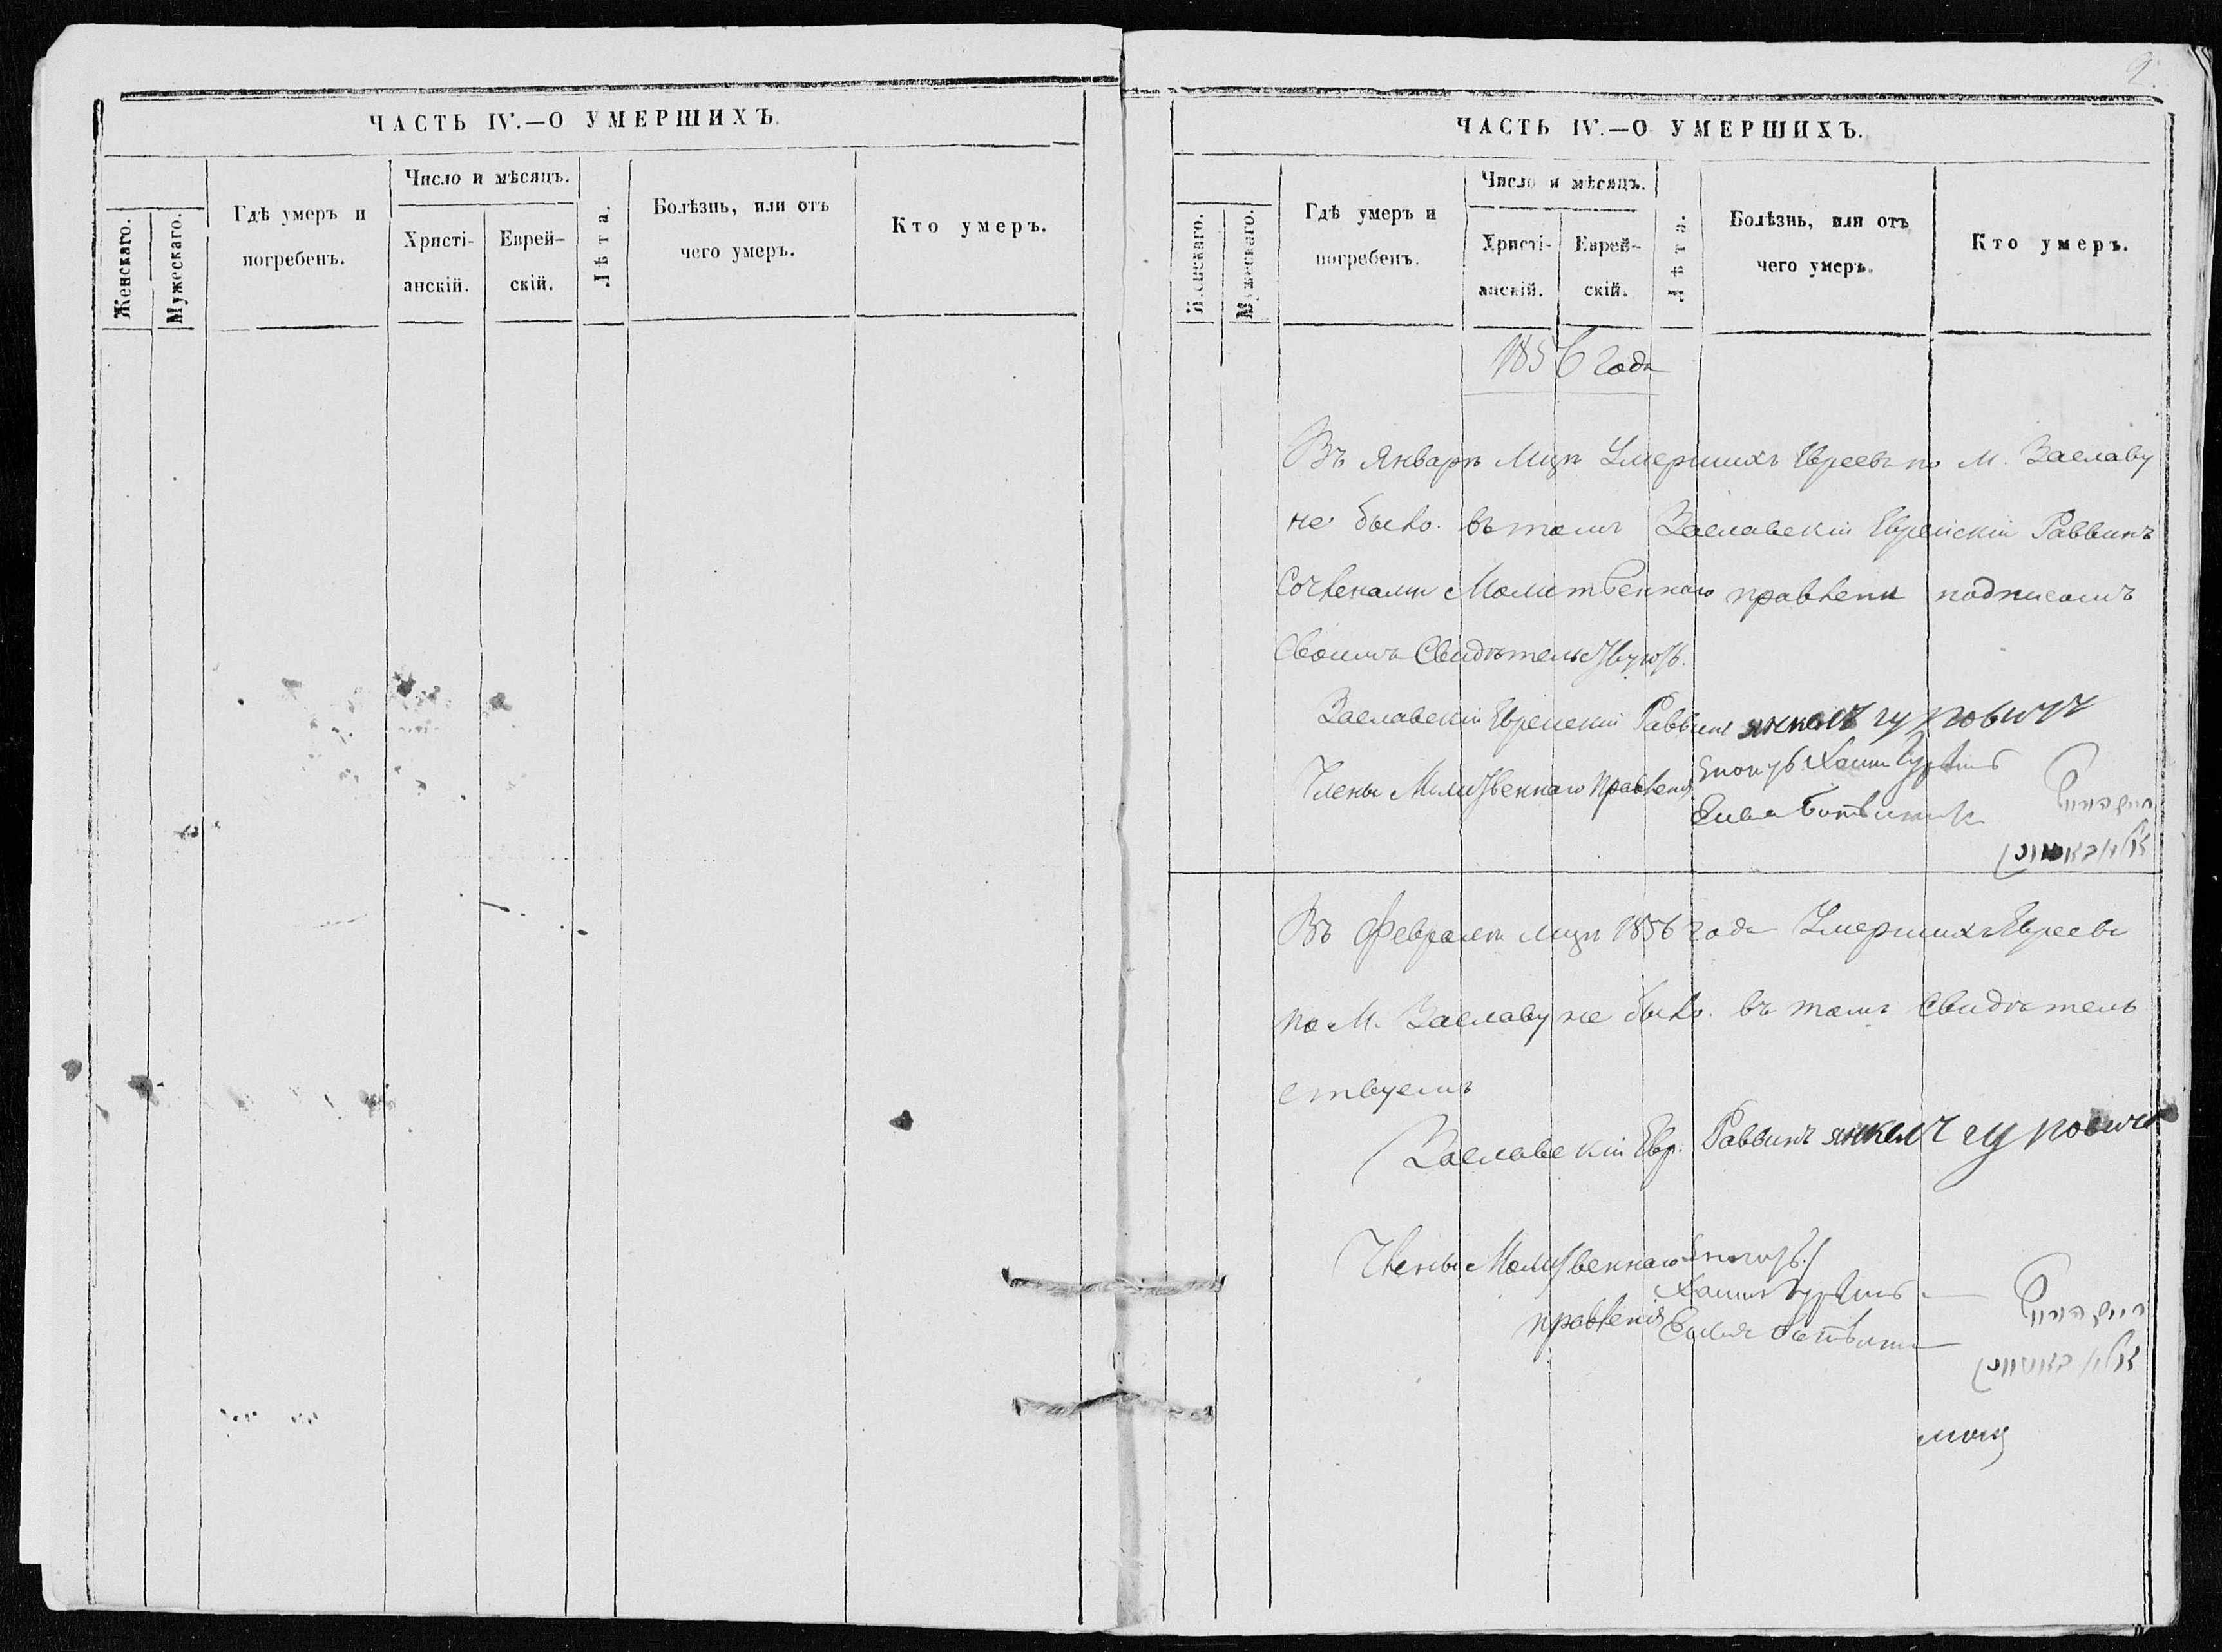 ЧАСТЬ IV.—О УМЕРШИХЪ.
Женскаго.
Мужескаго.
Гдѣ умеръ и
погребенъ.
Число и мѣсяцъ.
Христі-
анскій.
Еврей-
скій.
Лѣта.
Болѣзнь, или отъ
чего умеръ.
Кто умеръ.
2.
ЧАСТЬ IV.—О УМЕРШИХЪ.
Женскаго.
Мужескаго.
Гдѣ умеръ и
погребенъ.
Число и мѣсяцъ.
Христі-
анскій.
Еврей-
скій.
Лѣта.
Болѣзнь, или отъ
чего умеръ.
Кто умеръ.
1856 года
Въ Январѣ Мцѣ Умершихъ Евреевъ по М. Заславу
не было. въ томъ Заславскій Еврейскій Раввинъ
Сочленами Молитвеннаго правлени подписомъ
Своимъ Свидѣтельствуютъ.
Заславскій Еврейскій Раввинъ янкель гурвичъ
Члены Молитвеннаго правленія Хаимъ
Ботвиник
Въ Февралѣ мцѣ 1856 года Умершихъ Евреевъ
по М. Заславу не было. въ томъ Свидѣтель
ствуемъ
Заславскій Евр. Раввинъ янкель
Члены Молитвеннаго
правленія Хаимъ